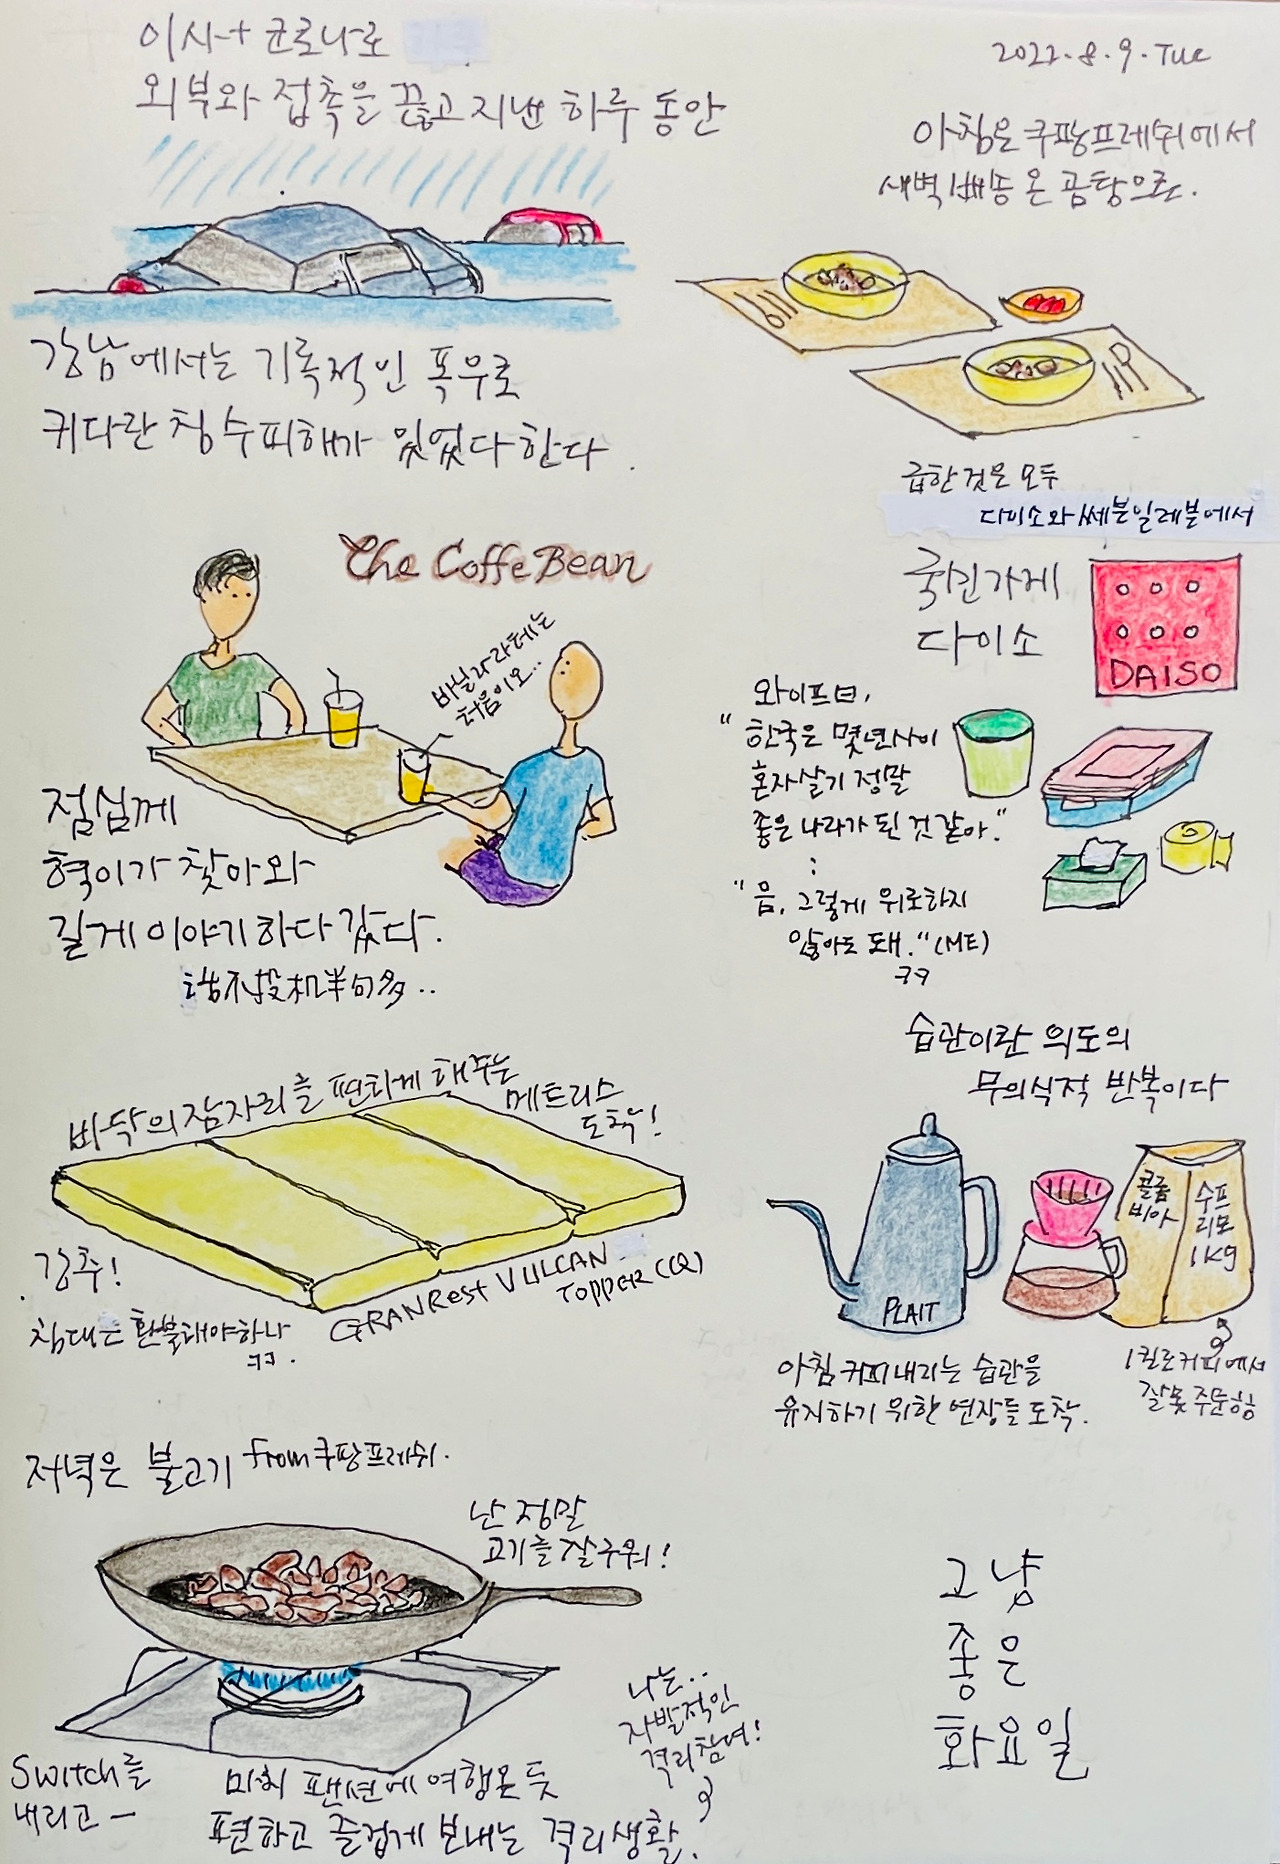 이사+코로나로
외부와 접촉을 끊고 지낸 하루 동안
2022.8.9.Tue
아침은 쿠팡프레쉬에서
새벽배송 온 곰탕으로.
강남에서는 기록적인 폭우로
커다란 침수피해가 있었다 한다.
급한 것은 모두
다이소와 쎄븐일레븐에서
국민가게
다이소
DAISO
와이프曰,
"한국은 몇년사이
혼자살기 정말
좋은 나라가 된 것 같아."
:
"음, 그렇게 위로하지
않아도 돼." (ME)
ㅋㅋ
The Coffe Bean
바닐라라떼는
처음이오...
점심께
혁이가 찾아와
길게 이야기하다 갔다.
話不投机半句多..
습관이란 의도의
무의식적 반복이다
PLAIT
콜롬
비아
수프
리모
1kg
아침 커피내리는 습관을
유지하기 위한 연장들 도착.
1킬로커피에서
잘못 주문함
바닥의 잠자리를 편하게 해주는
메트리스
도착!
강추!
침대는 환불해야하나
ㅋㅋ.
GRANRest VULCAN
TOPPER(Q)
저녁은 불고기 from 쿠팡프레쉬.
난 정말
고기를 잘구워!
나는..
자발적인
격리참여!
Switch를
내리고 —
마치 팬션에 여행온 듯
편하고 즐겁게 보내는 격리생활.
그냥
좋은
화요일